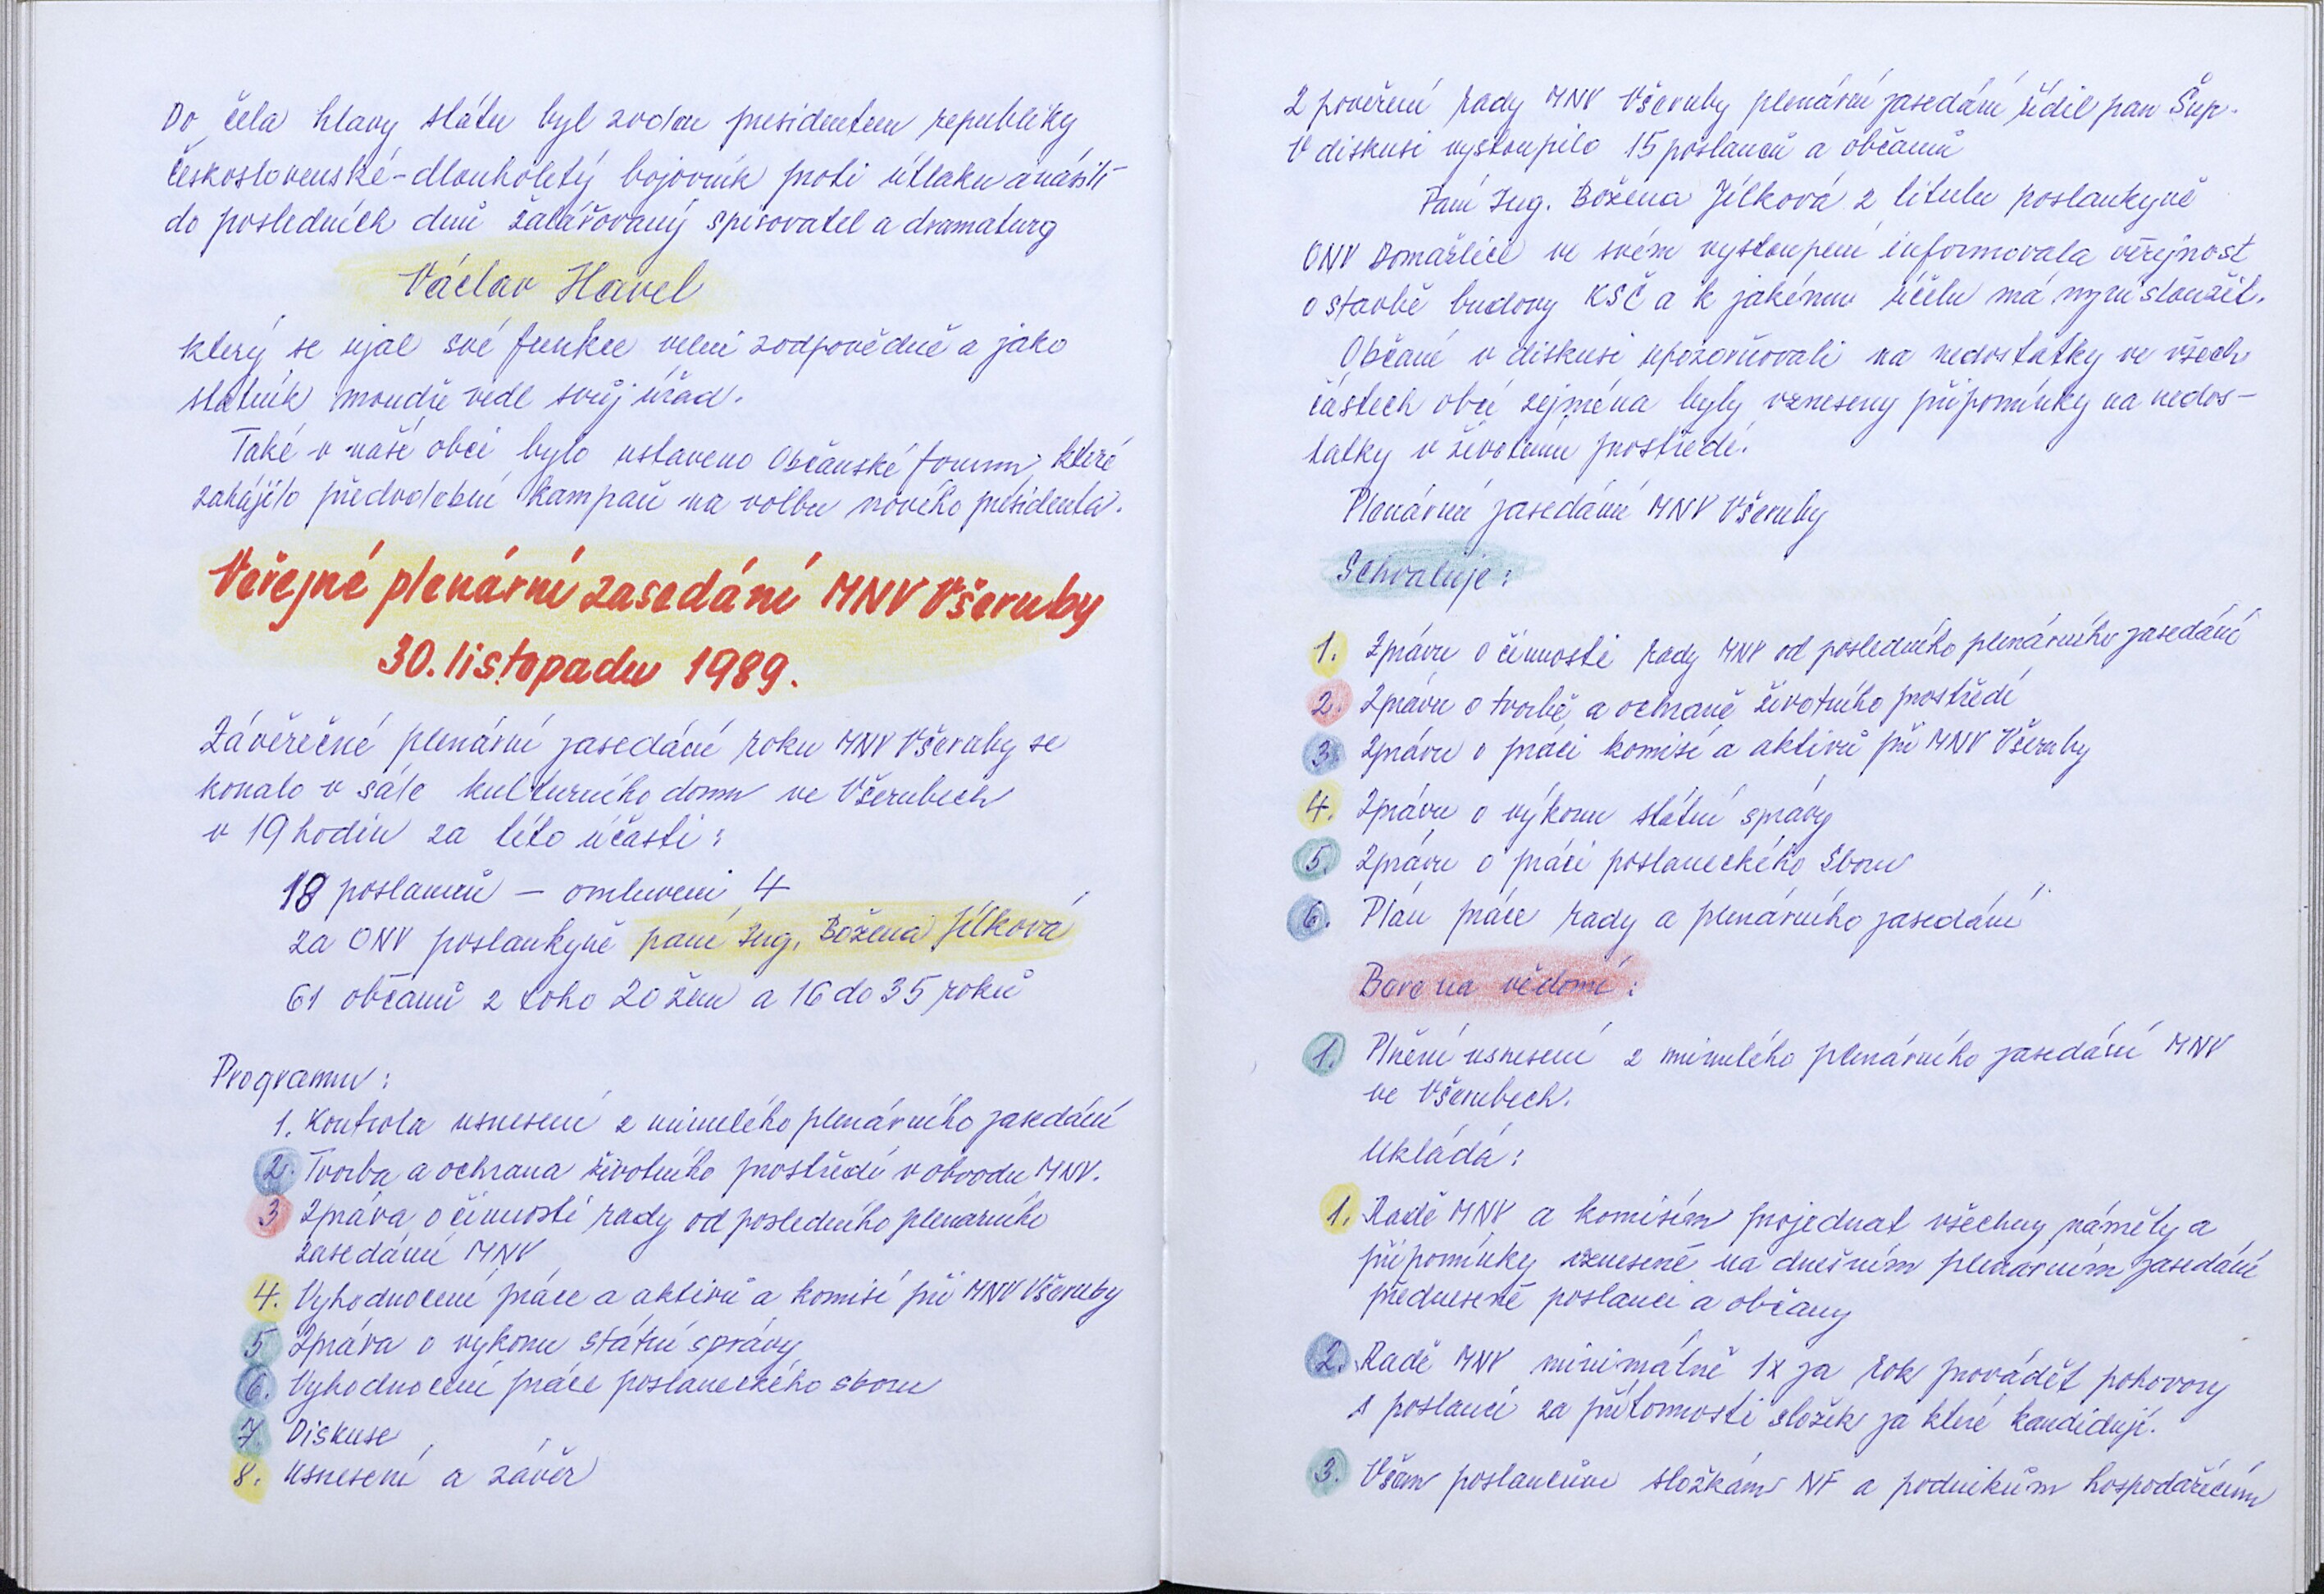 Do čela hlavy státu byl zvolen presidentem republiky
Československé - dlouholetý bojovník proti útlaku a násilí
do posledních dnů žalářovaný spisovatel a dramaturg
Václav Havel
který se ujal své funkce velmi zodpovědně a jako
státník moudře vedl svůj úřad.
Také v naší obci bylo ustaveno Občanské forum, které
zahájilo předvolební kampaň na volbu nového presidenta.
Veřejné plenární zasedání MNV Všeruby
30. listopadu 1989.
Závěrečné plenární zasedání roku MNV Všeruby se
konalo v sále kulturního domu ve Všerubech
v 19 hodin za této účasti:
18 poslanců - omluveni 4
za ONV poslankyně paní Ing. Božena Jílková
61 občanů z toho 20 žen a 16 do 35 roků
Programu:
1. Kontrola usnesení z minulého plenárního zasedání
2. Tvorba a ochrana životního prostředí v obvodu MNV.
3 Zpráva o činnosti rady od posledního plenárního
zasedání MNV
4. Vyhodnocení práce a aktivů a komisí při MNV Všeruby
5 Zpráva o výkonu státní správy
6. Vyhodnocení práce poslaneckého sboru
7. Diskuse
8. Usnesení a závěr
Z pověření rady MNV Všeruby plenární zasedání řídil pan Šup.
V diskusi vystoupilo 15 poslanců a občanů
Paní Ing. Božena Jílková z titulu poslankyně
ONV Domažlice ve svém vystoupení informovala veřejnost
o stavbě budovy KSČ a k jakému účelu má nyní sloužit.
Občané v diskusi upozorňovali na nedostatky ve všech
částech obcí zejména byly vzneseny připomínky na nedos-
tatky v životním prostředí.
Plenární zasedání MNV Všeruby
Schvaluje:
1. Zprávu o činnosti rady MNV od posledního plenárního zasedání
2. Zprávu o tvorbě a ochraně životního prostředí
3. Zprávu o práci komisí a aktivů při MNV Všeruby
4. Zprávu o výkonu státní správy
5. Zprávu o práci poslaneckého sboru
6. Plán práce rady a plenárního zasedání
Bere na vědomí:
1. Plnění usnesení z minulého plenárního zasedání MNV
ve Všerubech.
Ukládá:
1. Radě MNV a komisím projednat všechny náměty a
připomínky vznesené na dnešním plenárním zasedání
přednesené poslanci a občany
2. Radě MNV minimálně 1x za rok provádět pohovory
s poslanci za přítomnosti složek za které kandidují.
3. Všem poslancům složkám NF a podnikům hospodařícím